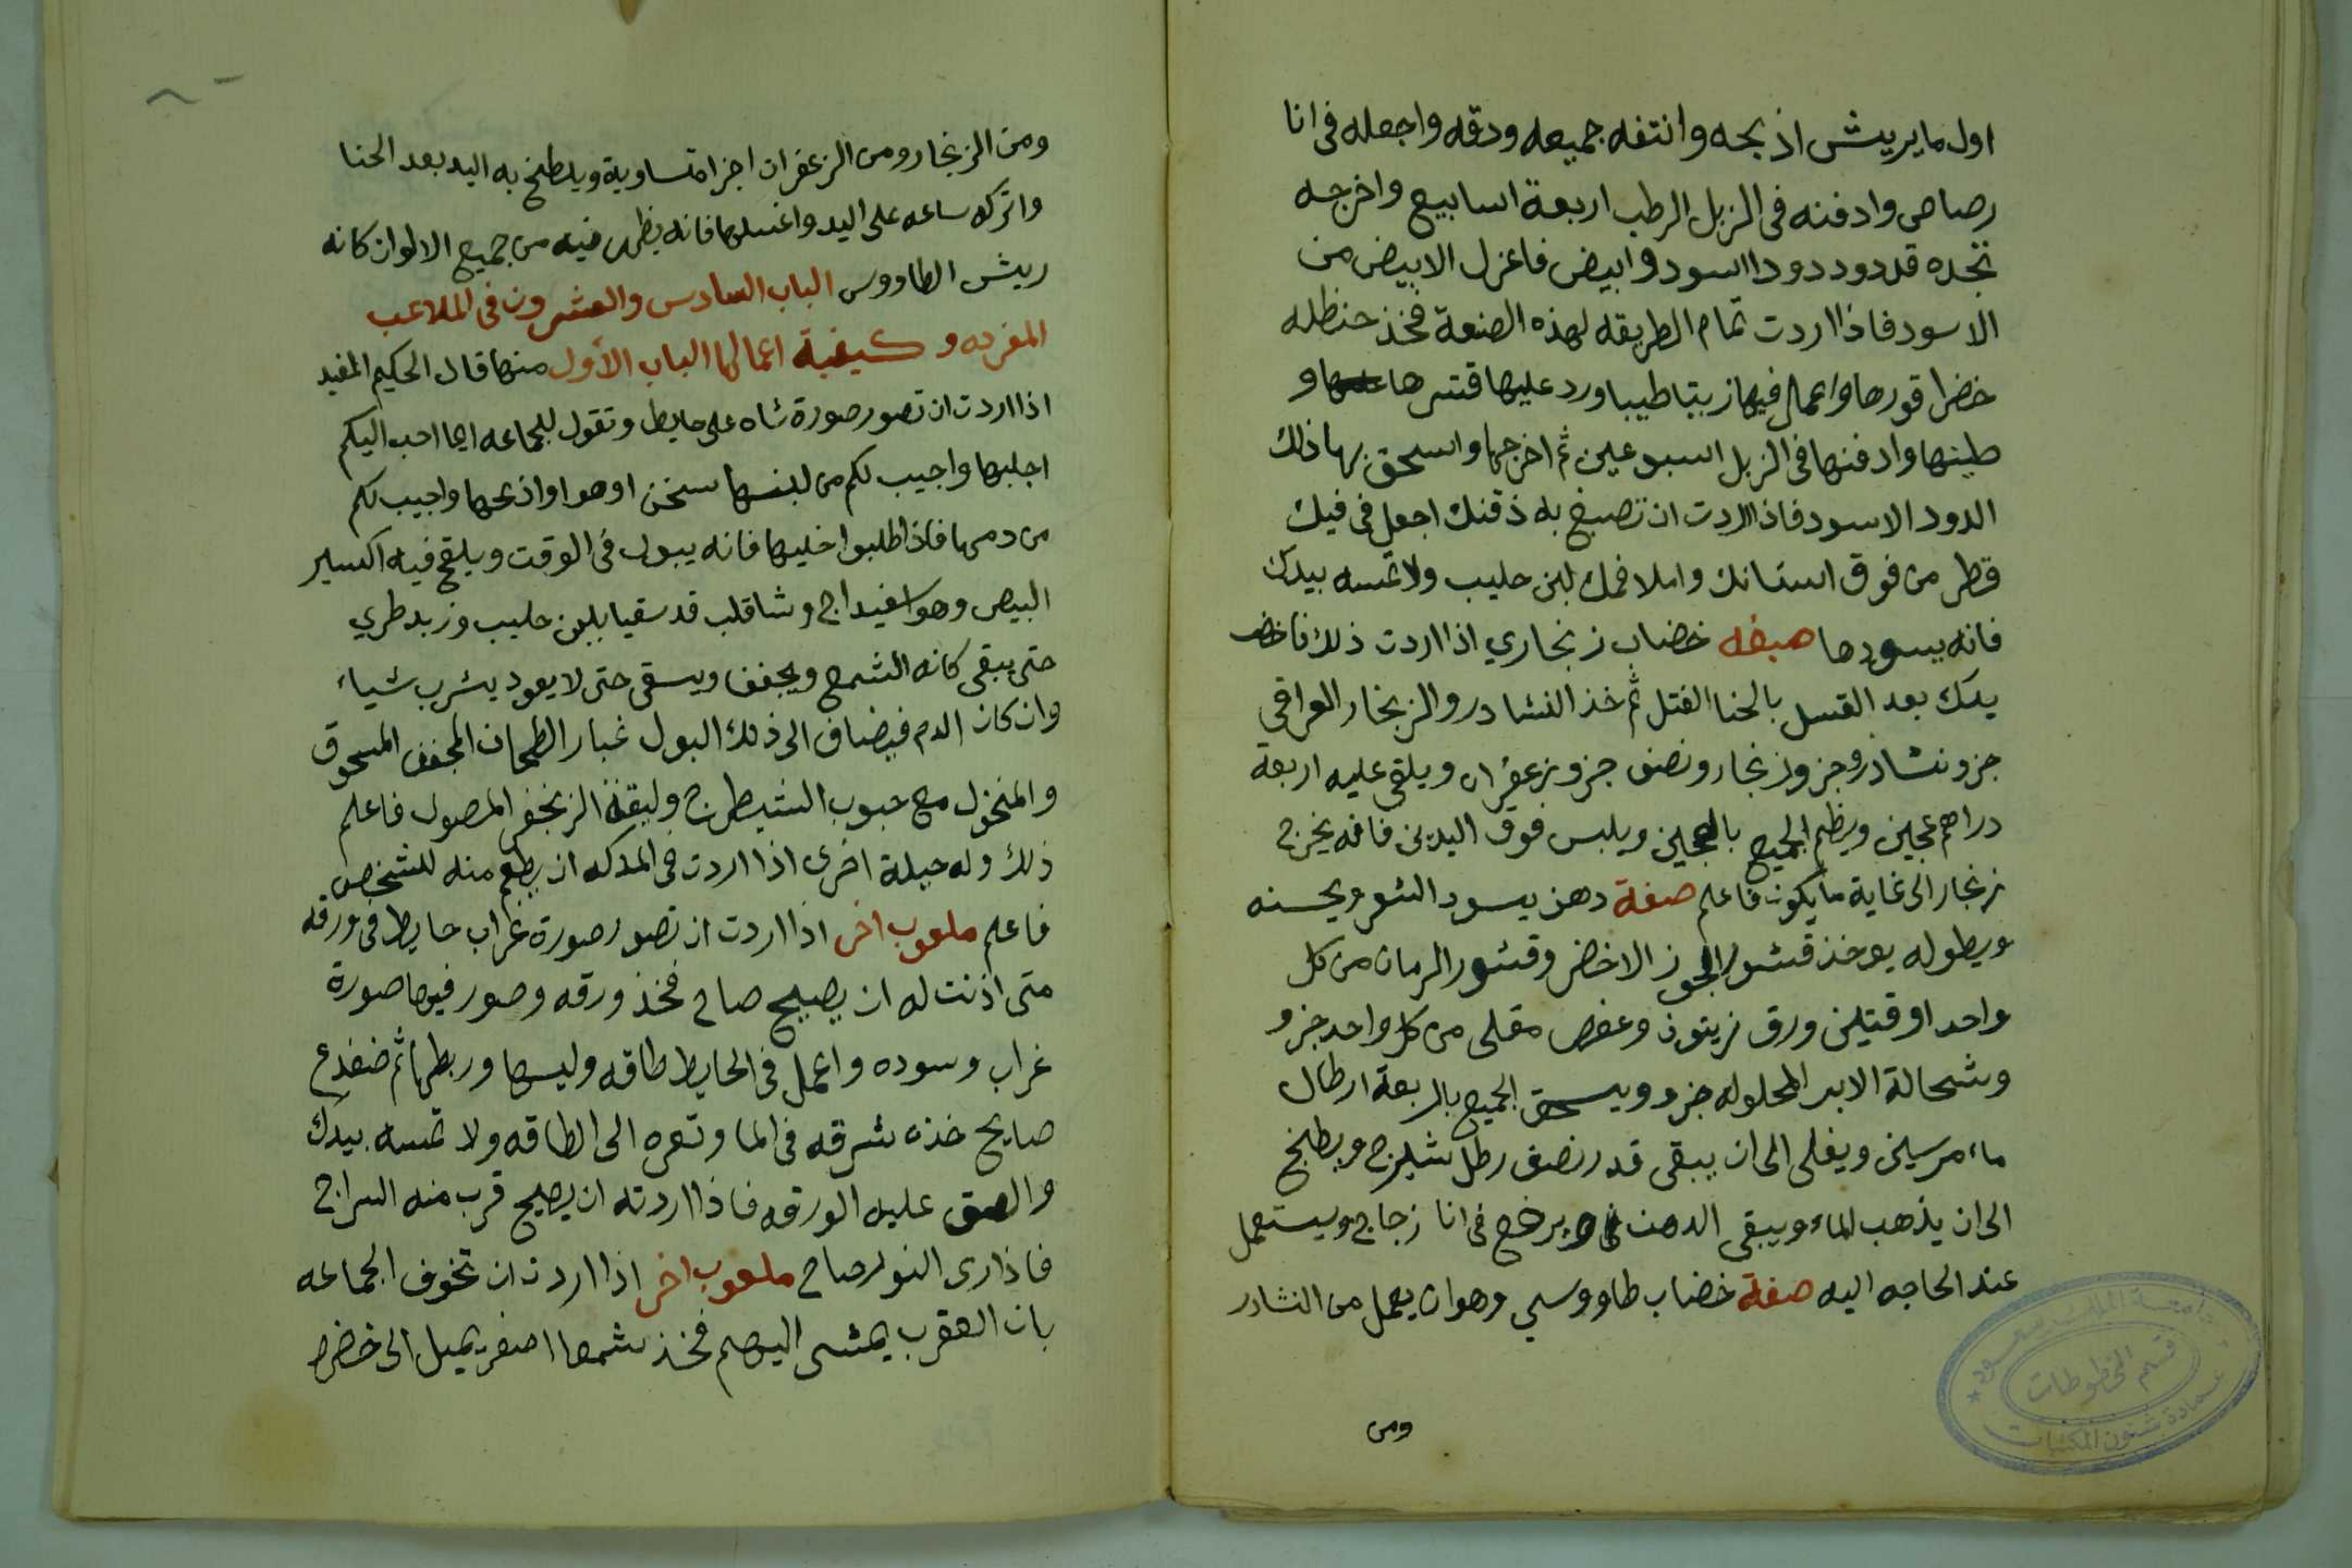 اول ما يريش اذبحه وانتفه جميعه ودقه واجعله فى انا
رصاص وادفنه فى الزبل الرطب اربعة اسابيع واخرجه
تجده قد دود دودا اسود وابيض فاعزل الابيض من
الاسود فاذا اردت تمام الطريقه لهذه الصنعة فخذ حنظله
خضرا قورها واعمل فيها زيتا طيبا ورد عليها قشرها و
طينها وادفنها فى الزبل اسبوعين ثم اخرجها واسحق بها ذلك
الدود الاسود فاذا اردت ان تصبغ به ذقنك اجعل فى فيك
قطر من فوق اسنانك واملا فمك لبن حليب ولا تمسه بيدك
فانه يسودها صبغه خضاب زنجاري اذا اردت ذلك فاخضب
يدك بعد الغسل بالحنا الفتل ثم خذ النشادر والزنجار العراقي
جزو نشادر وجزو زنجار ونصف جزو زعفران ويلقى عليه اربعة
دراهم عجين ويظم الجميع بالعجين ويلبس فوق اليدين فانه يخرج
زنجار الى غاية ما يكون فاعلم صفة دهن يسود الشعر ويحسنه
ويطوله يوخذ قشور الجوز الاخضر وقشور الرمان من كل
واحد اوقتين ورق زيتون وعفص مقلى من كل واحد جزو
وشحالة الابر المحلوله جزو ويسحق الجميع باربعة ارطال
ماء مرسين ويغلى الى ان يبقى قدر نصف رطل شيرج ويطبخ
الى ان يذهب الماء ويبقى الدهن ويرفع فى انا زجاج ويستعمل
عند الحاجه اليه صفة خضاب طاووسي وهو ان يعمل من النشادر
ومن
جامعة الملك سعود
قسم المخطوطات
عمادة شئون المكتبات
ومن الزنجار ومن الزعفران اجزا متساوية ويلطخ به اليد بعد الحنا
واتركه ساعه على اليد واغسلها فانه يظهر فيه من جميع الالوان كانه
ريش الطاووس الباب السادس والعشرون فى الملاعب
المفرده وكيفية اعمالها الباب الأول منها قال الحكيم المفيد
اذا اردت ان تصور صورة شاه على حايط وتقول للجماعه ايما احب اليكم
اجلبها واجيب لكم من لبنها سخن اوهوا واذبحها واجيب لكم
من دمها فاذا طلبوا خليها فانه يبول فى الوقت ويلقح فيه اكسير
البيض وهو اسفيداج وشاقلب قد سقيا بلبن حليب وزبد طري
حتى يبقى كانه الشمع ويجفف ويسقى حتى لا يعود يشرب شياء
وان كان الدم فيضاف الى ذلك البول غبار الطحان المجفف المسحوق
والمنخول مع حبوب الشيطرج وليقة الزنجفر المصول فاعلم
ذلك وله حيلة اخرى اذا اردت فى المدكه ان يطعم منه للشخص
فاعلم ملعوب اخر اذا اردت ان تصور صورة غراب حايط فى ورقه
متى اذنت له ان يصيح صاح فخذ ورقه وصور فيها صورة
غراب وسوده واعمل فى الحايط طاقه وليسها وربطها ثم ضفدع
صايح خذه شرقه فى الما وتعره الى الطاقه ولا تمسه بيدك
والصق عليه الورقه فاذا اردته ان يصيح قرب منه السراج
فاذا رى النور صاح ملعوب اخر اذا اردت ان تخوف الجماعه
بان العقرب يمشى اليهم فخذ شمعا اصفر يميل الى خضره